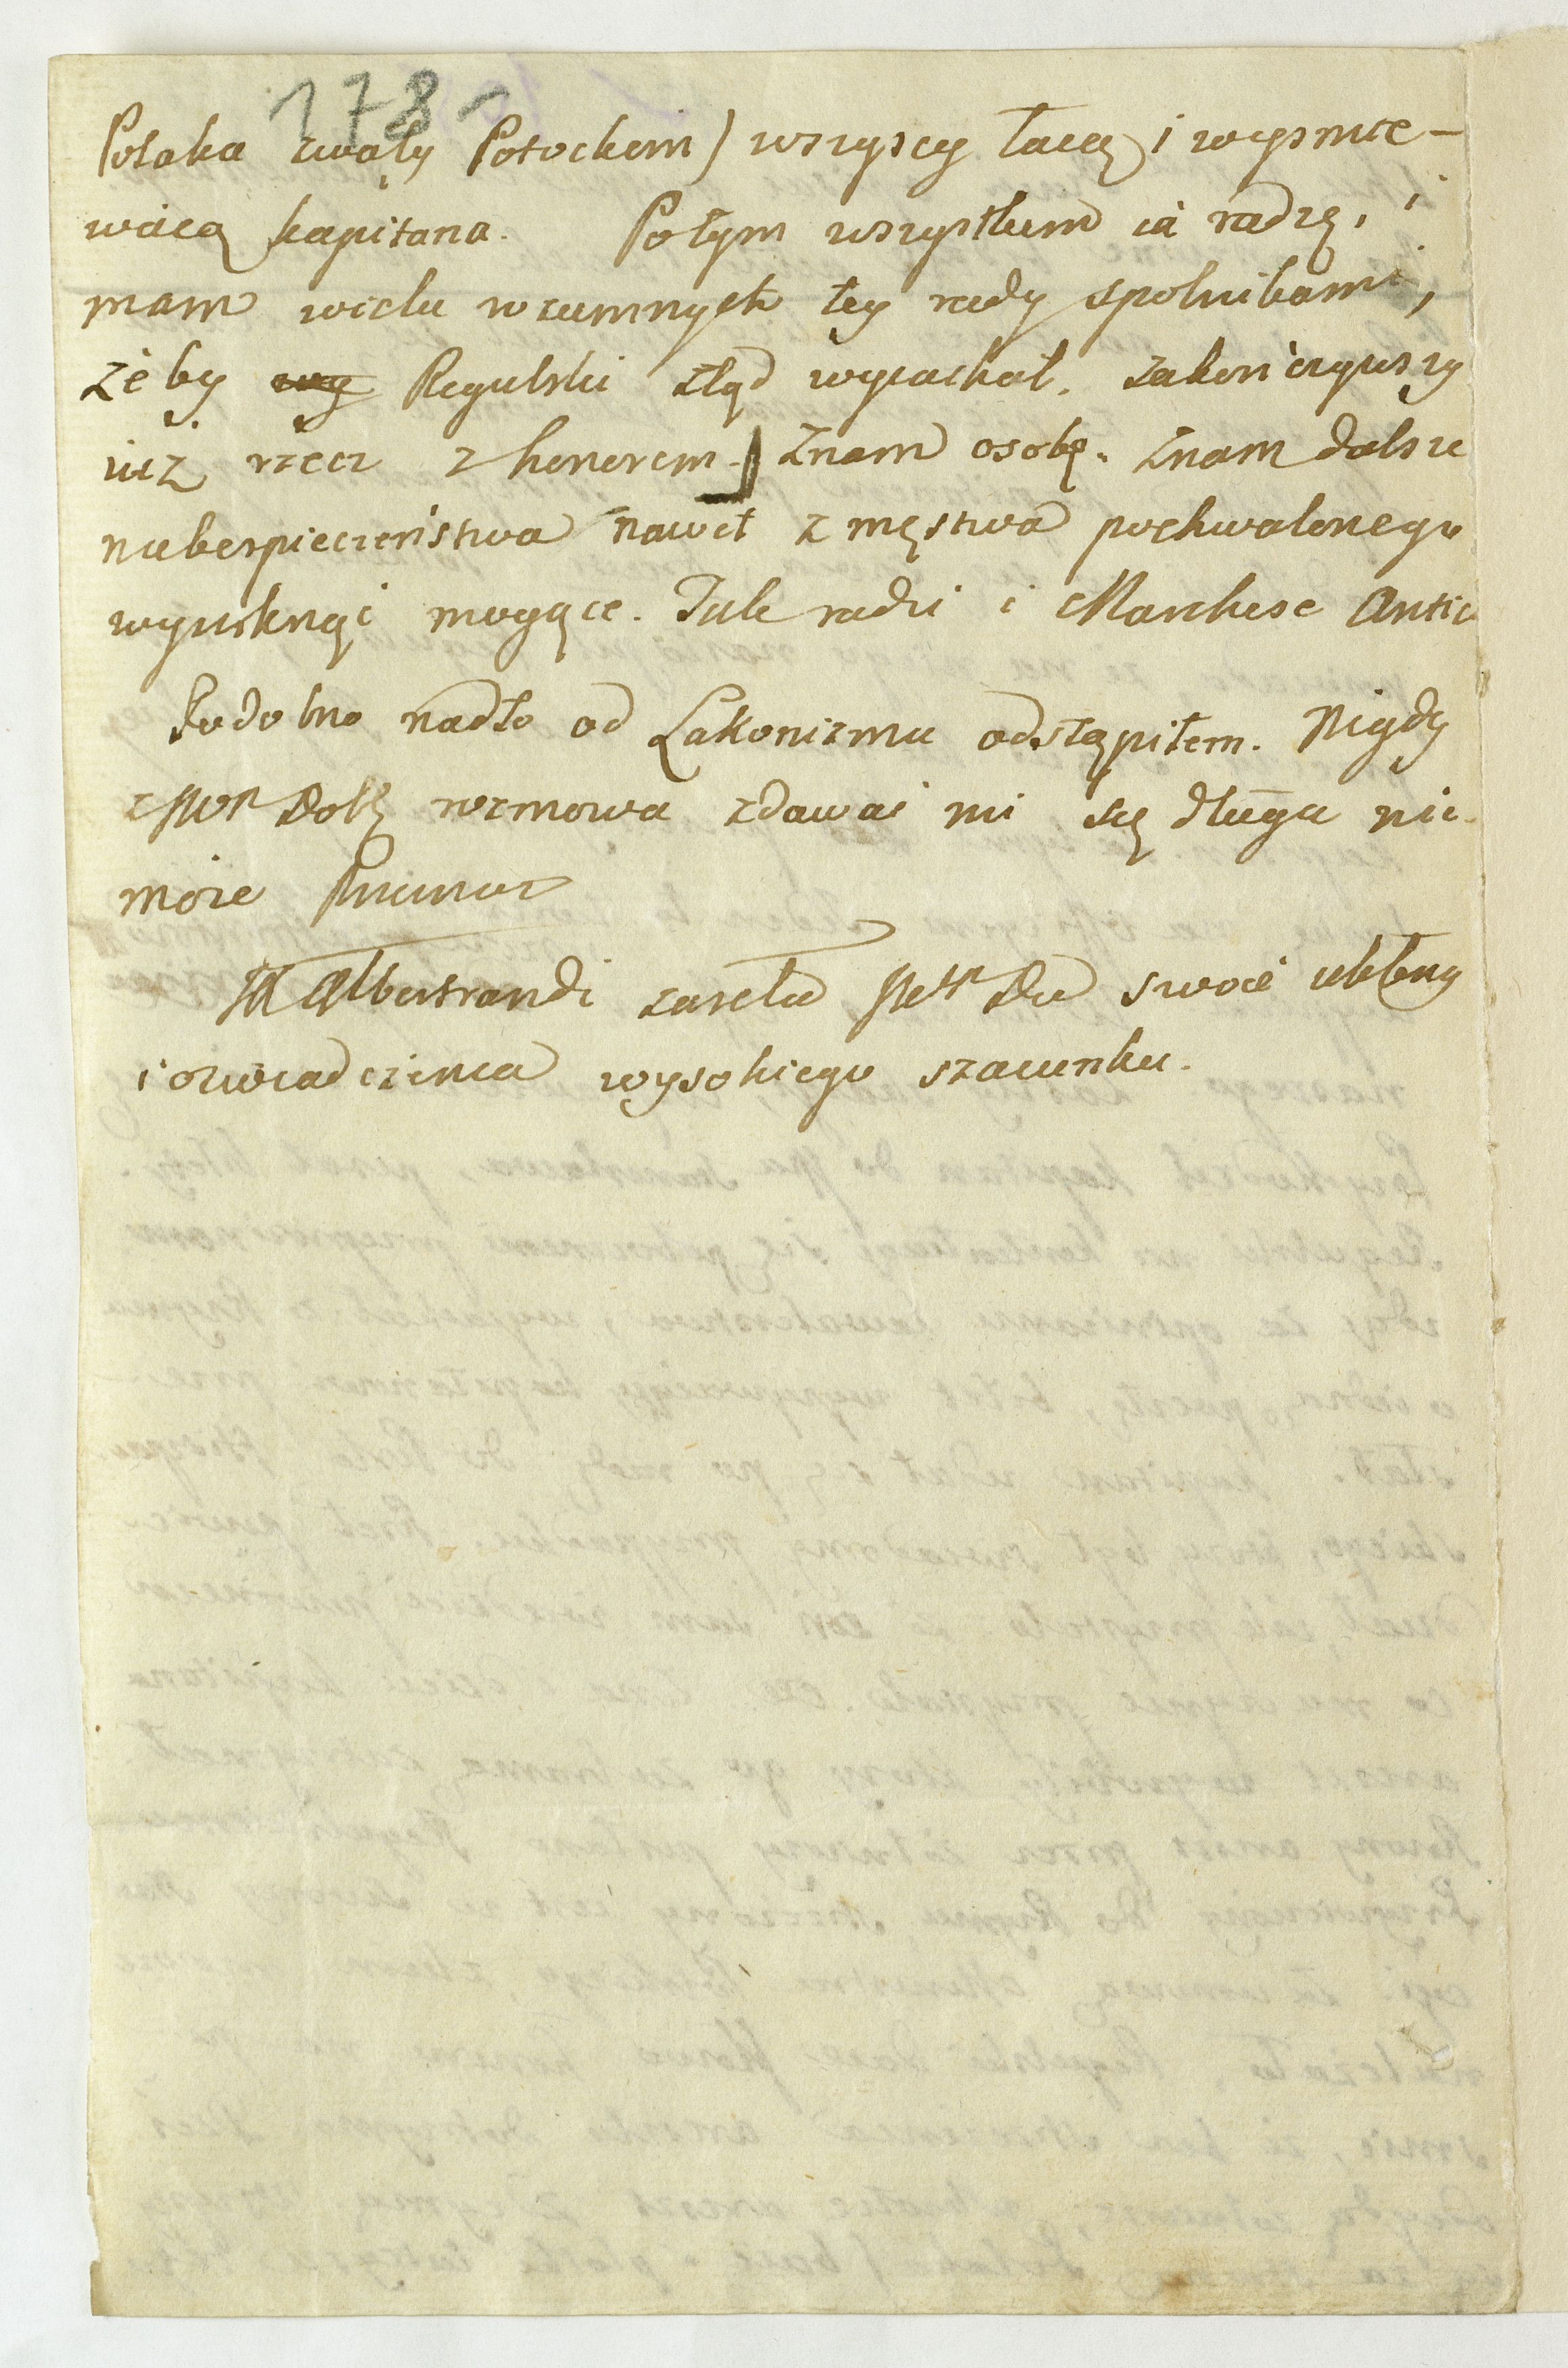 178
Polaka zwały Potockim) wszyscy łaią i wysmie-
waią kapitana. Potym wszystkim ia radzę, i
mam wielu rozumnych tey rady spolnikami,
żeby Regulski ztąd wyiachał, zakończywszy
iuż rzecz z honorem. Znam osobę. Znam dalsze
niebespieczeństwa nawet z męstwa pochwalonego
wyniknąć mogące. Tak radzi i Marchese Antici
Podobno nadto od Lakonizmu odstąpiłem. Nigdy
z rozmowa zdawać mi się długa nie
może
Albertrandi zaseła swoie ukłony
i oswiadczenia wysokiego szacunku.